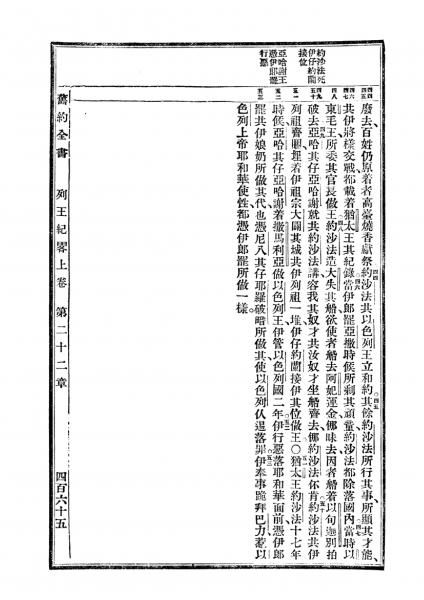 約沙法死
伊仔約蘭
接位
亞哈謝王
憑伊郎罷
行惡
廢去百姓仍原着者高臺燒香獻祭約沙法共以色列王立和約其餘約沙法所行其事所顯其才能
共伊將樣交戰都載着猶太王其紀錄當伊郎罷亞撒時候所剩其頑童約沙法都除落國內當時以
東毛王所委其官長做王約沙法造大失其船欲使者船去阿妃運金仰昧去因者船着以旬迦別拍
破去亞哈其仔亞哈謝就共約沙法講容我其奴才共汝奴才坐船齊去仰約沙法伓肯約沙法共伊
列祖齊睏埋着伊祖宗大闢其城共伊列祖一堆伊仔約蘭接伊其位做王〇猶太王約沙法十七年
時候亞哈其仔亞哈謝着撒馬利亞做以色列王伊管以色列國二年伊行惡落耶和華面前憑伊郎
罷共伊娘奶所做其代也憑尼八其仔耶羅破暗所做其使以色列仈落罪伊奉事跪拜巴力惹以
色列上帝耶和華使性都憑伊郎罷所做一樣
舊約全書 列王紀畧上卷 第二十二章 四百六十五